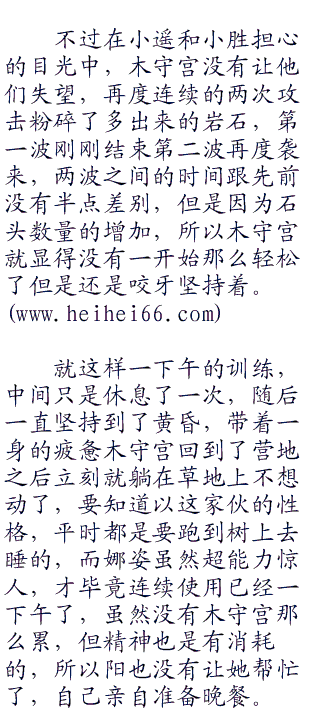 不过在小遥和小胜担心
的目光中，木守宫没有让他
们失望，再度连续的两次攻
击粉碎了多出来的岩石，第
一波刚刚结束第二波再度袭
来，两波之间的时间跟先前
没有半点差别，但是因为石
头数量的增加，所以木守宫
就显得没有一开始那么轻松
了但是还是咬牙坚持着。
(www.heihei66.com)
就这样一下午的训练，
中间只是休息了一次，随后
一直坚持到了黄昏，带着一
身的疲惫木守宫回到了营地
之后立刻就躺在草地上不想
动了，要知道以这家伙的性
格，平时都是要跑到树上去
睡的，而娜姿虽然超能力惊
人，才毕竟连续使用已经一
下午了，虽然没有木守宫那
么累，但精神也是有消耗
的，所以阳也没有让她帮忙
了，自己亲自准备晚餐。